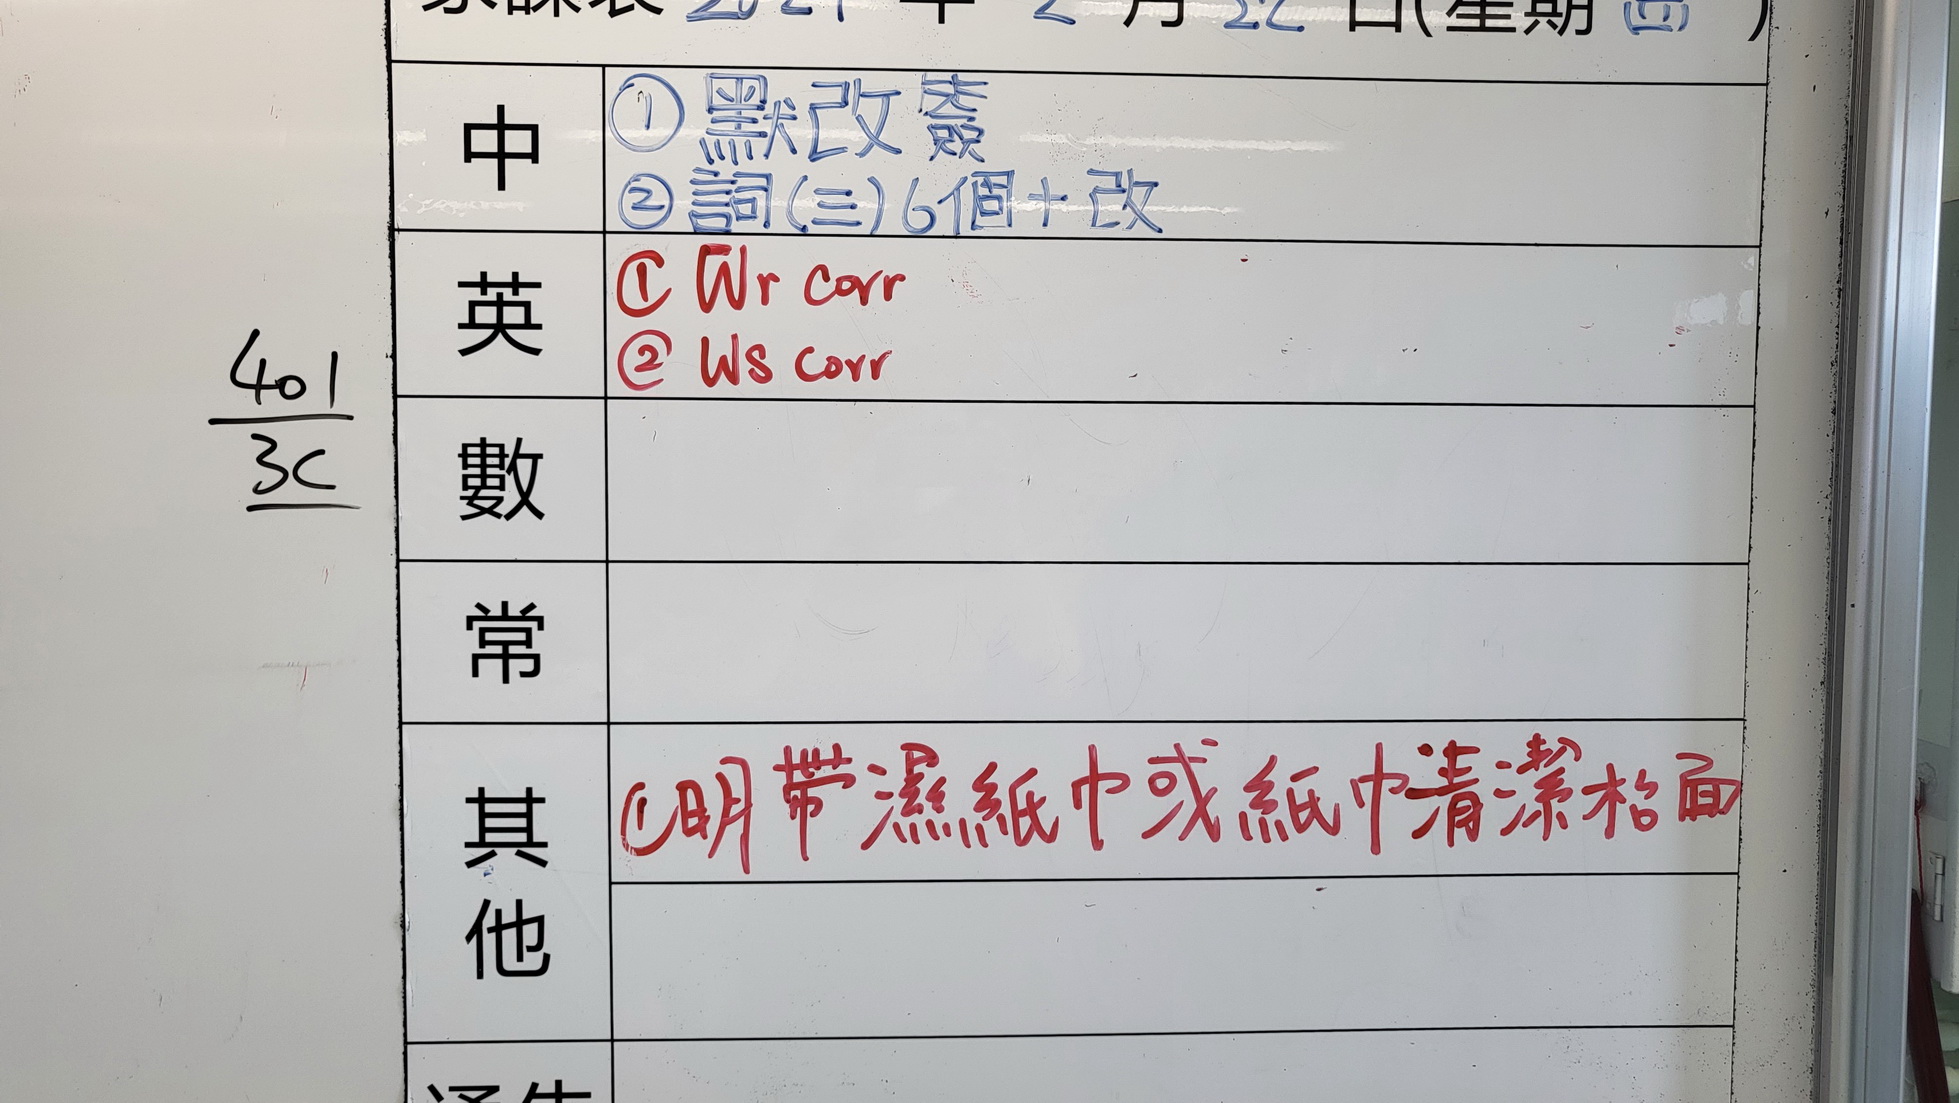 家課表 2024年 2月 22日(星期四)
中
① 默改簽
② 詞(三)6個+改
英
① Wr corr
② WS corr
401
3C
數
常
其他
①明帶濕紙巾或紙巾清潔枱面
通告